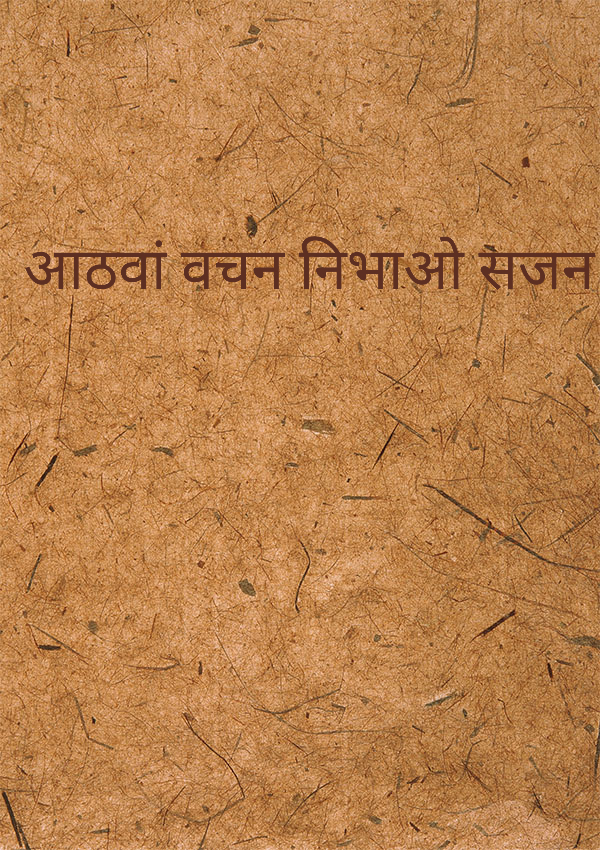 आठवां वचन निभाओ सजन